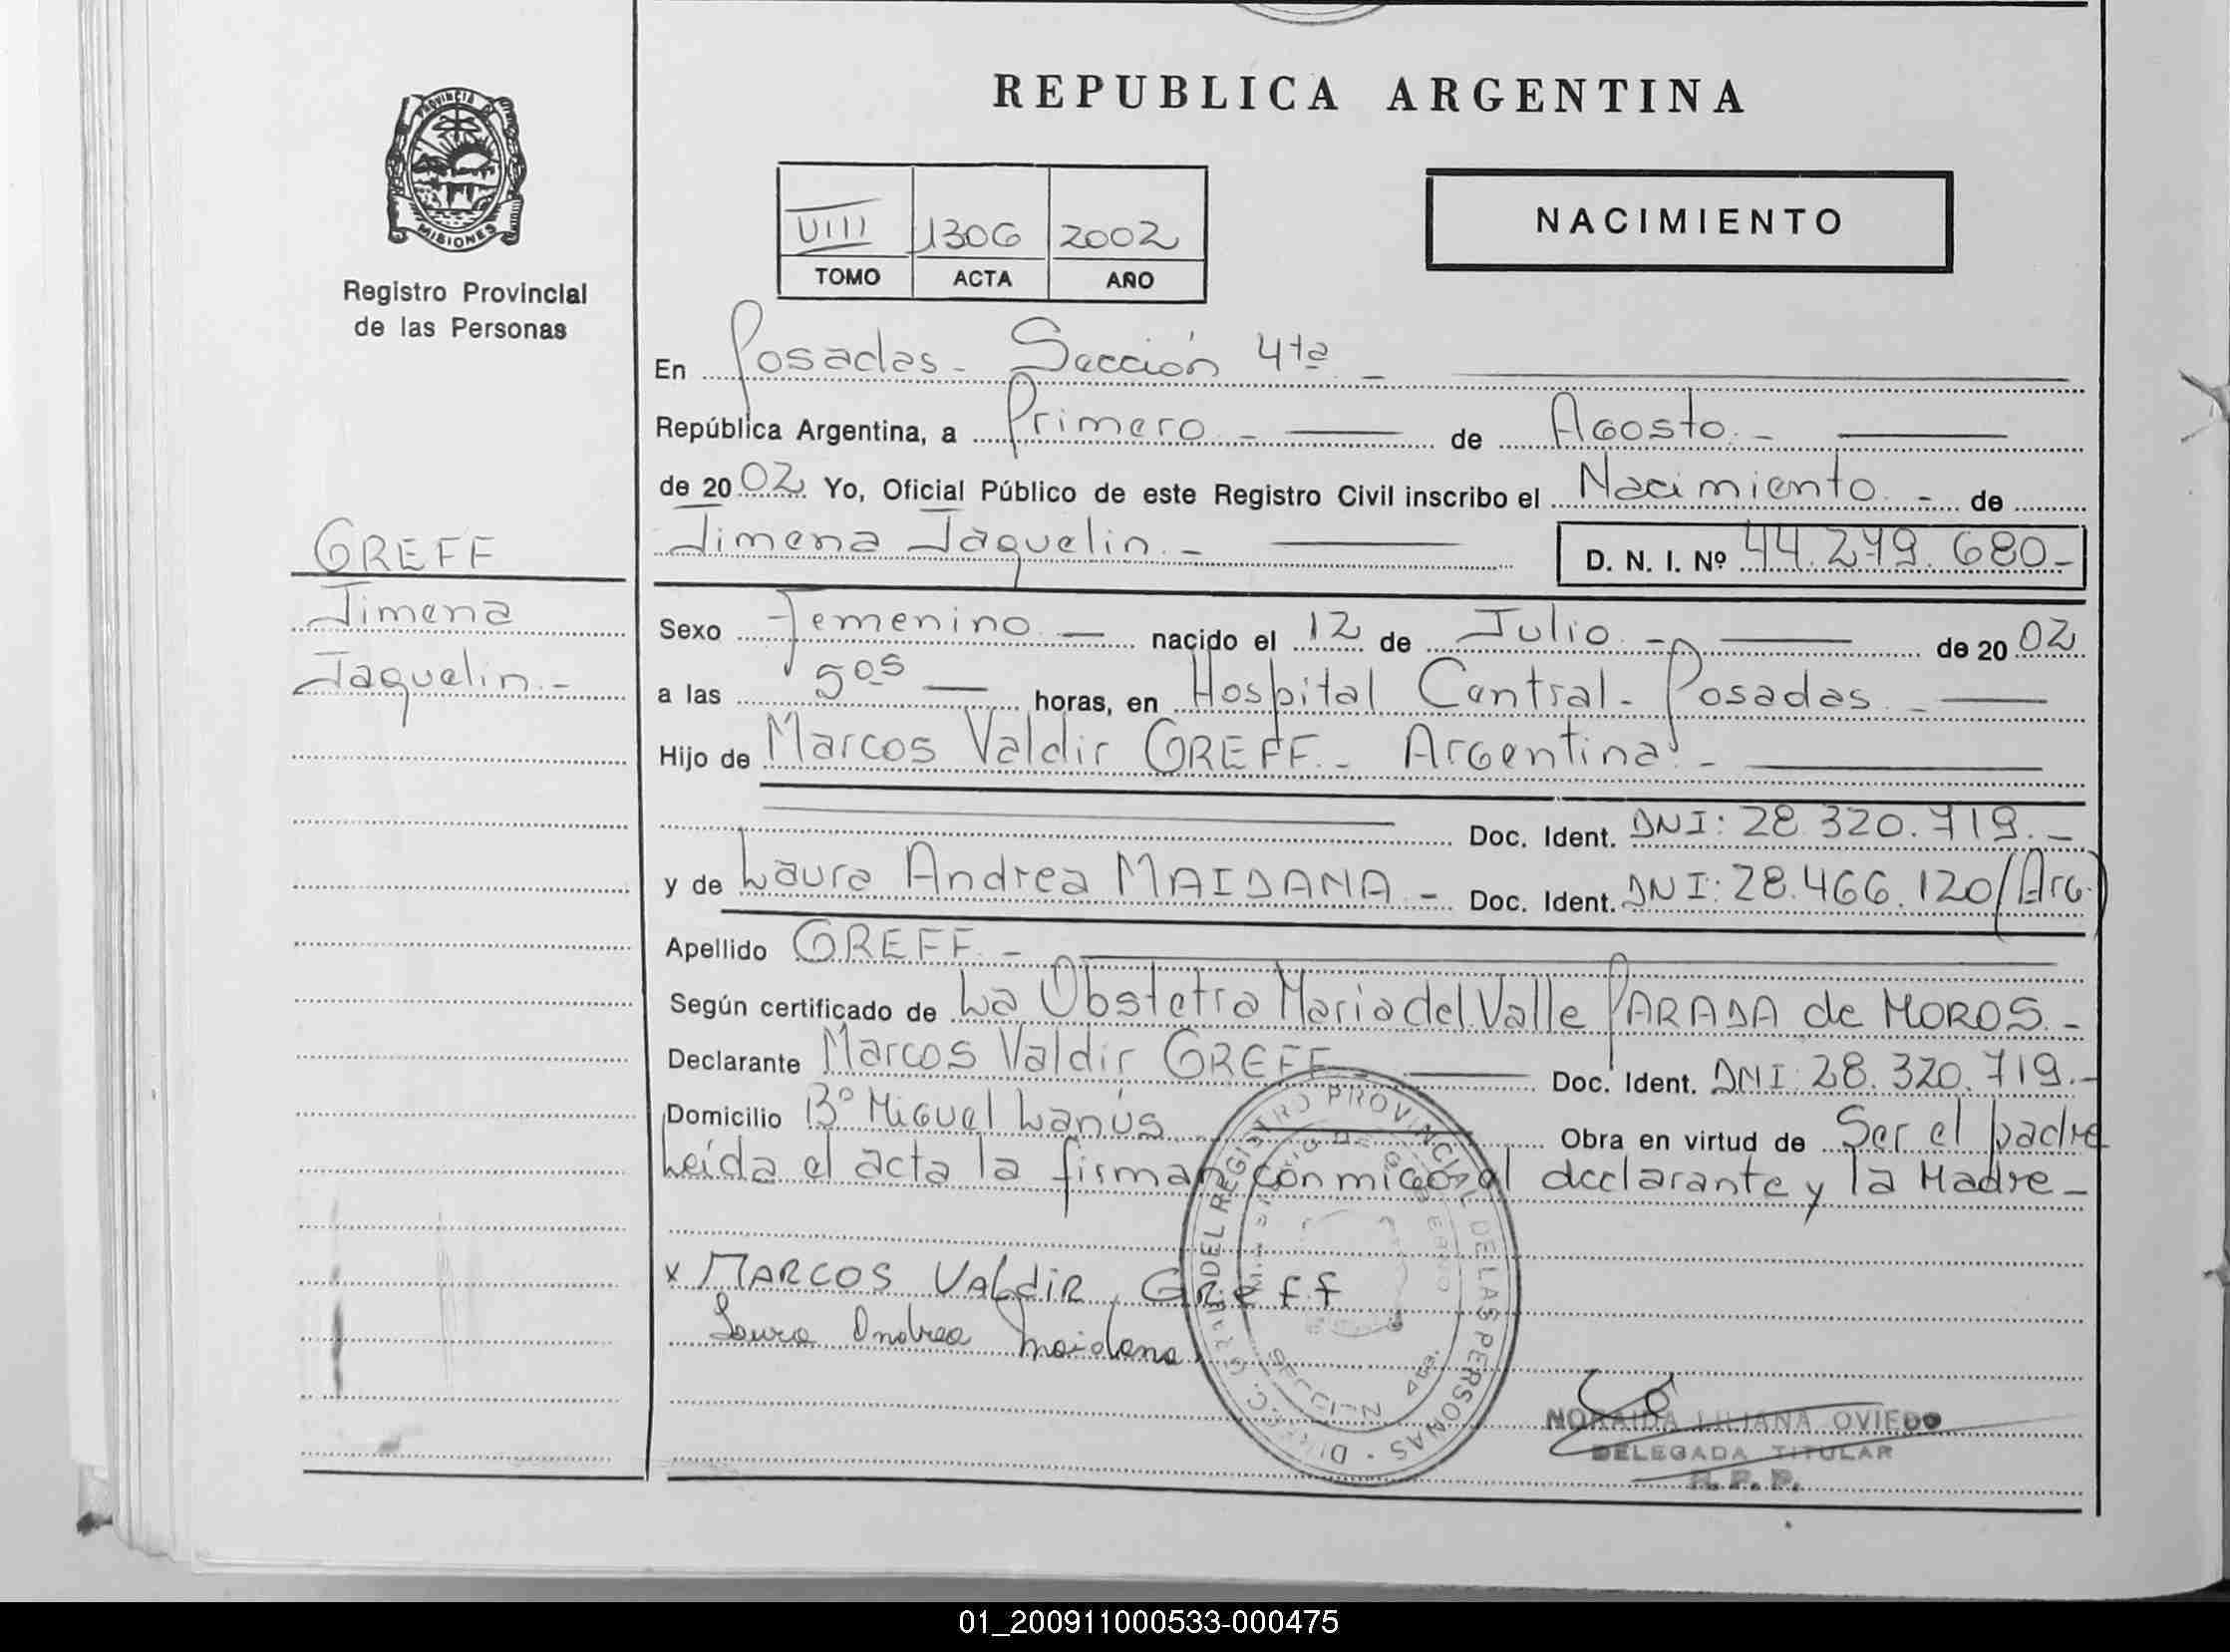 REPUBLICA ARGENTINA
PROVINCIA DE
MISIONES
Registro Provincial
de las Personas
VIII 1306 2002
TOMO ACTA AÑO
NACIMIENTO
En Posadas - Sección 4ta -
República Argentina, a Primero - de Agosto. -
de 2002 Yo, Oficial Público de este Registro Civil inscribo el Nacimiento. - de
Jimena Jaquelin. - D. N. I. Nº 44.279.680-
GREFF
Jimena
Jaquelin. -
Sexo Femenino - nacido el 12 de Julio. - de 2002
a las 5 05 horas, en Hospital Central - Posadas. -
Hijo de Marcos Valdir GREFF. - Argentina. -
Doc. Ident. DNI: 28.320.719. -
y de Laura Andrea MAIDANA. - Doc. Ident. DNI: 28.466.120 (Arg.)
Apellido GREFF. -
Según certificado de La Obstetra Maria del Valle PARADA de MOROS. -
Declarante Marcos Valdir GREFF - Doc. Ident. DNI: 28.320.719. -
Domicilio Bº Miguel Lanús Obra en virtud de Ser el padre
Leída el acta la firman conmigo el declarante y la Madre -
x MARCOS VALDIR Greff
Laura Andrea Maidana
DEL REGISTRO PROVINCIAL DE LAS PERSONAS
NORAIDA LILIANA OVIEDO
DELEGADA TITULAR
R. P. P.
01_200911000533-000475